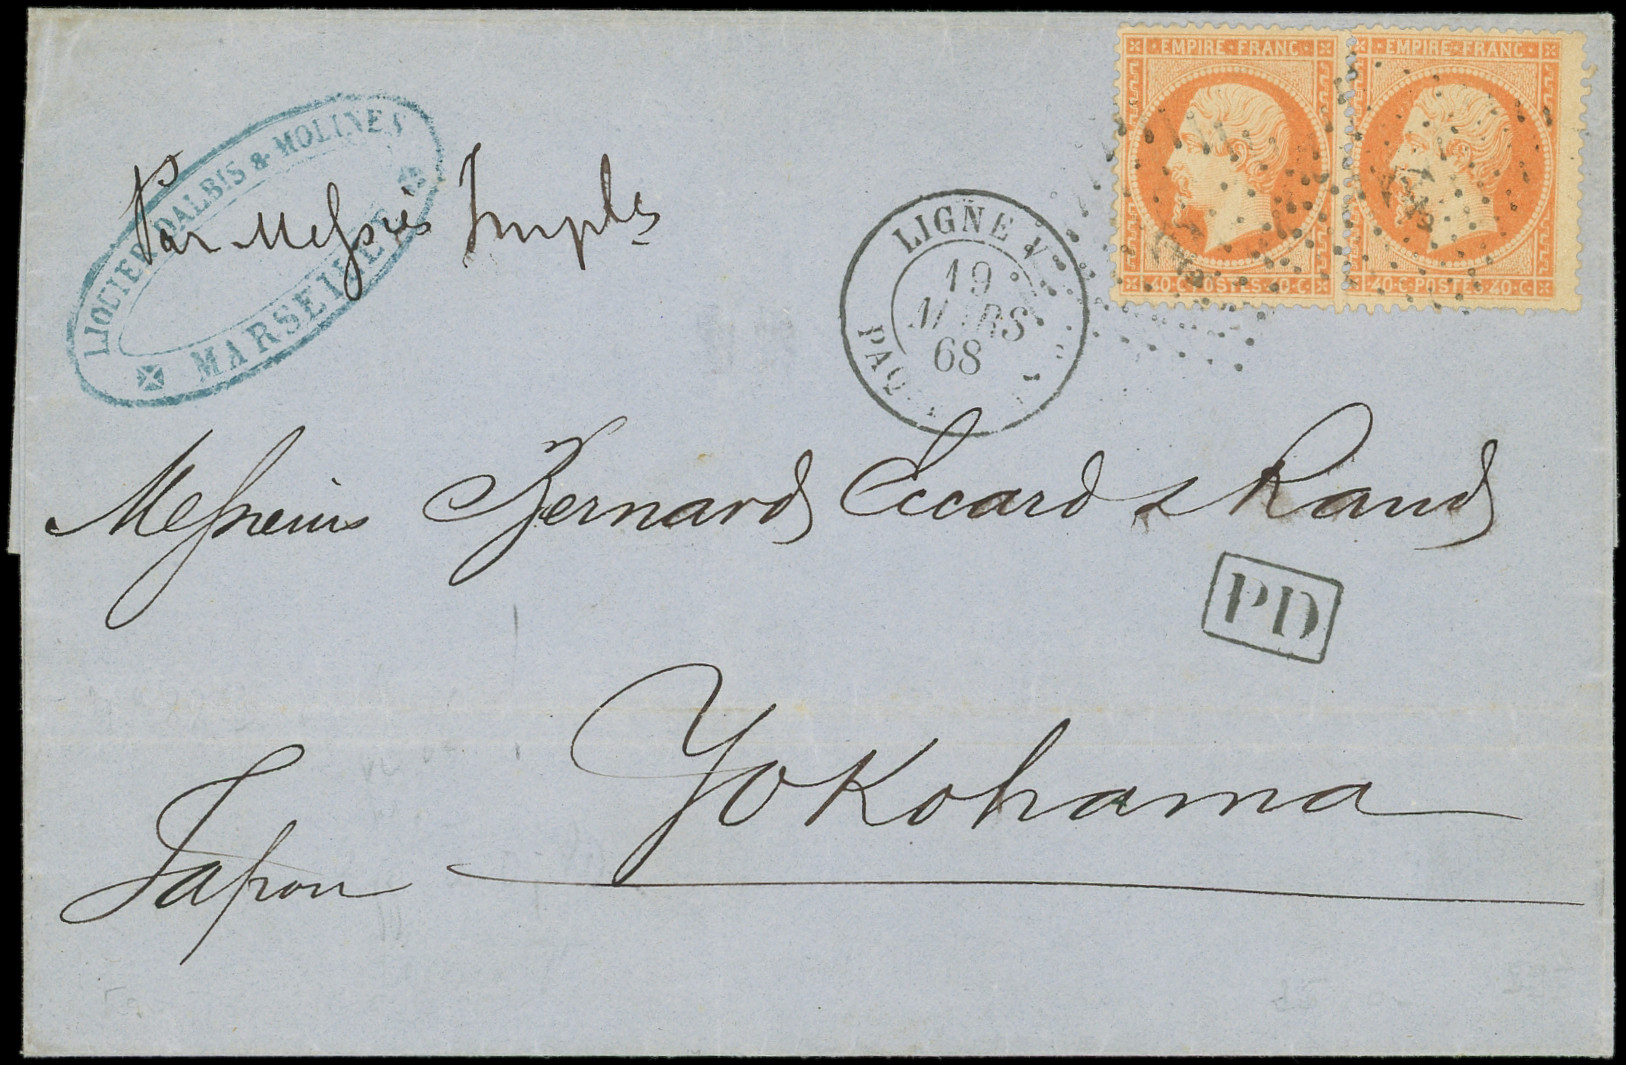 EMPIRE FRANC EMPIRE FRANC
40·C·POSTES·40·C· 40·C·POSTES·40·C·
LIQUIER DALBIS & MOLINES
MARSEILLE
Par Messries Imples
LIGNE V
19
MARS
68
PAQ
Messieurs Bernard Eccard & Rand
PD
Yokohama
Japon